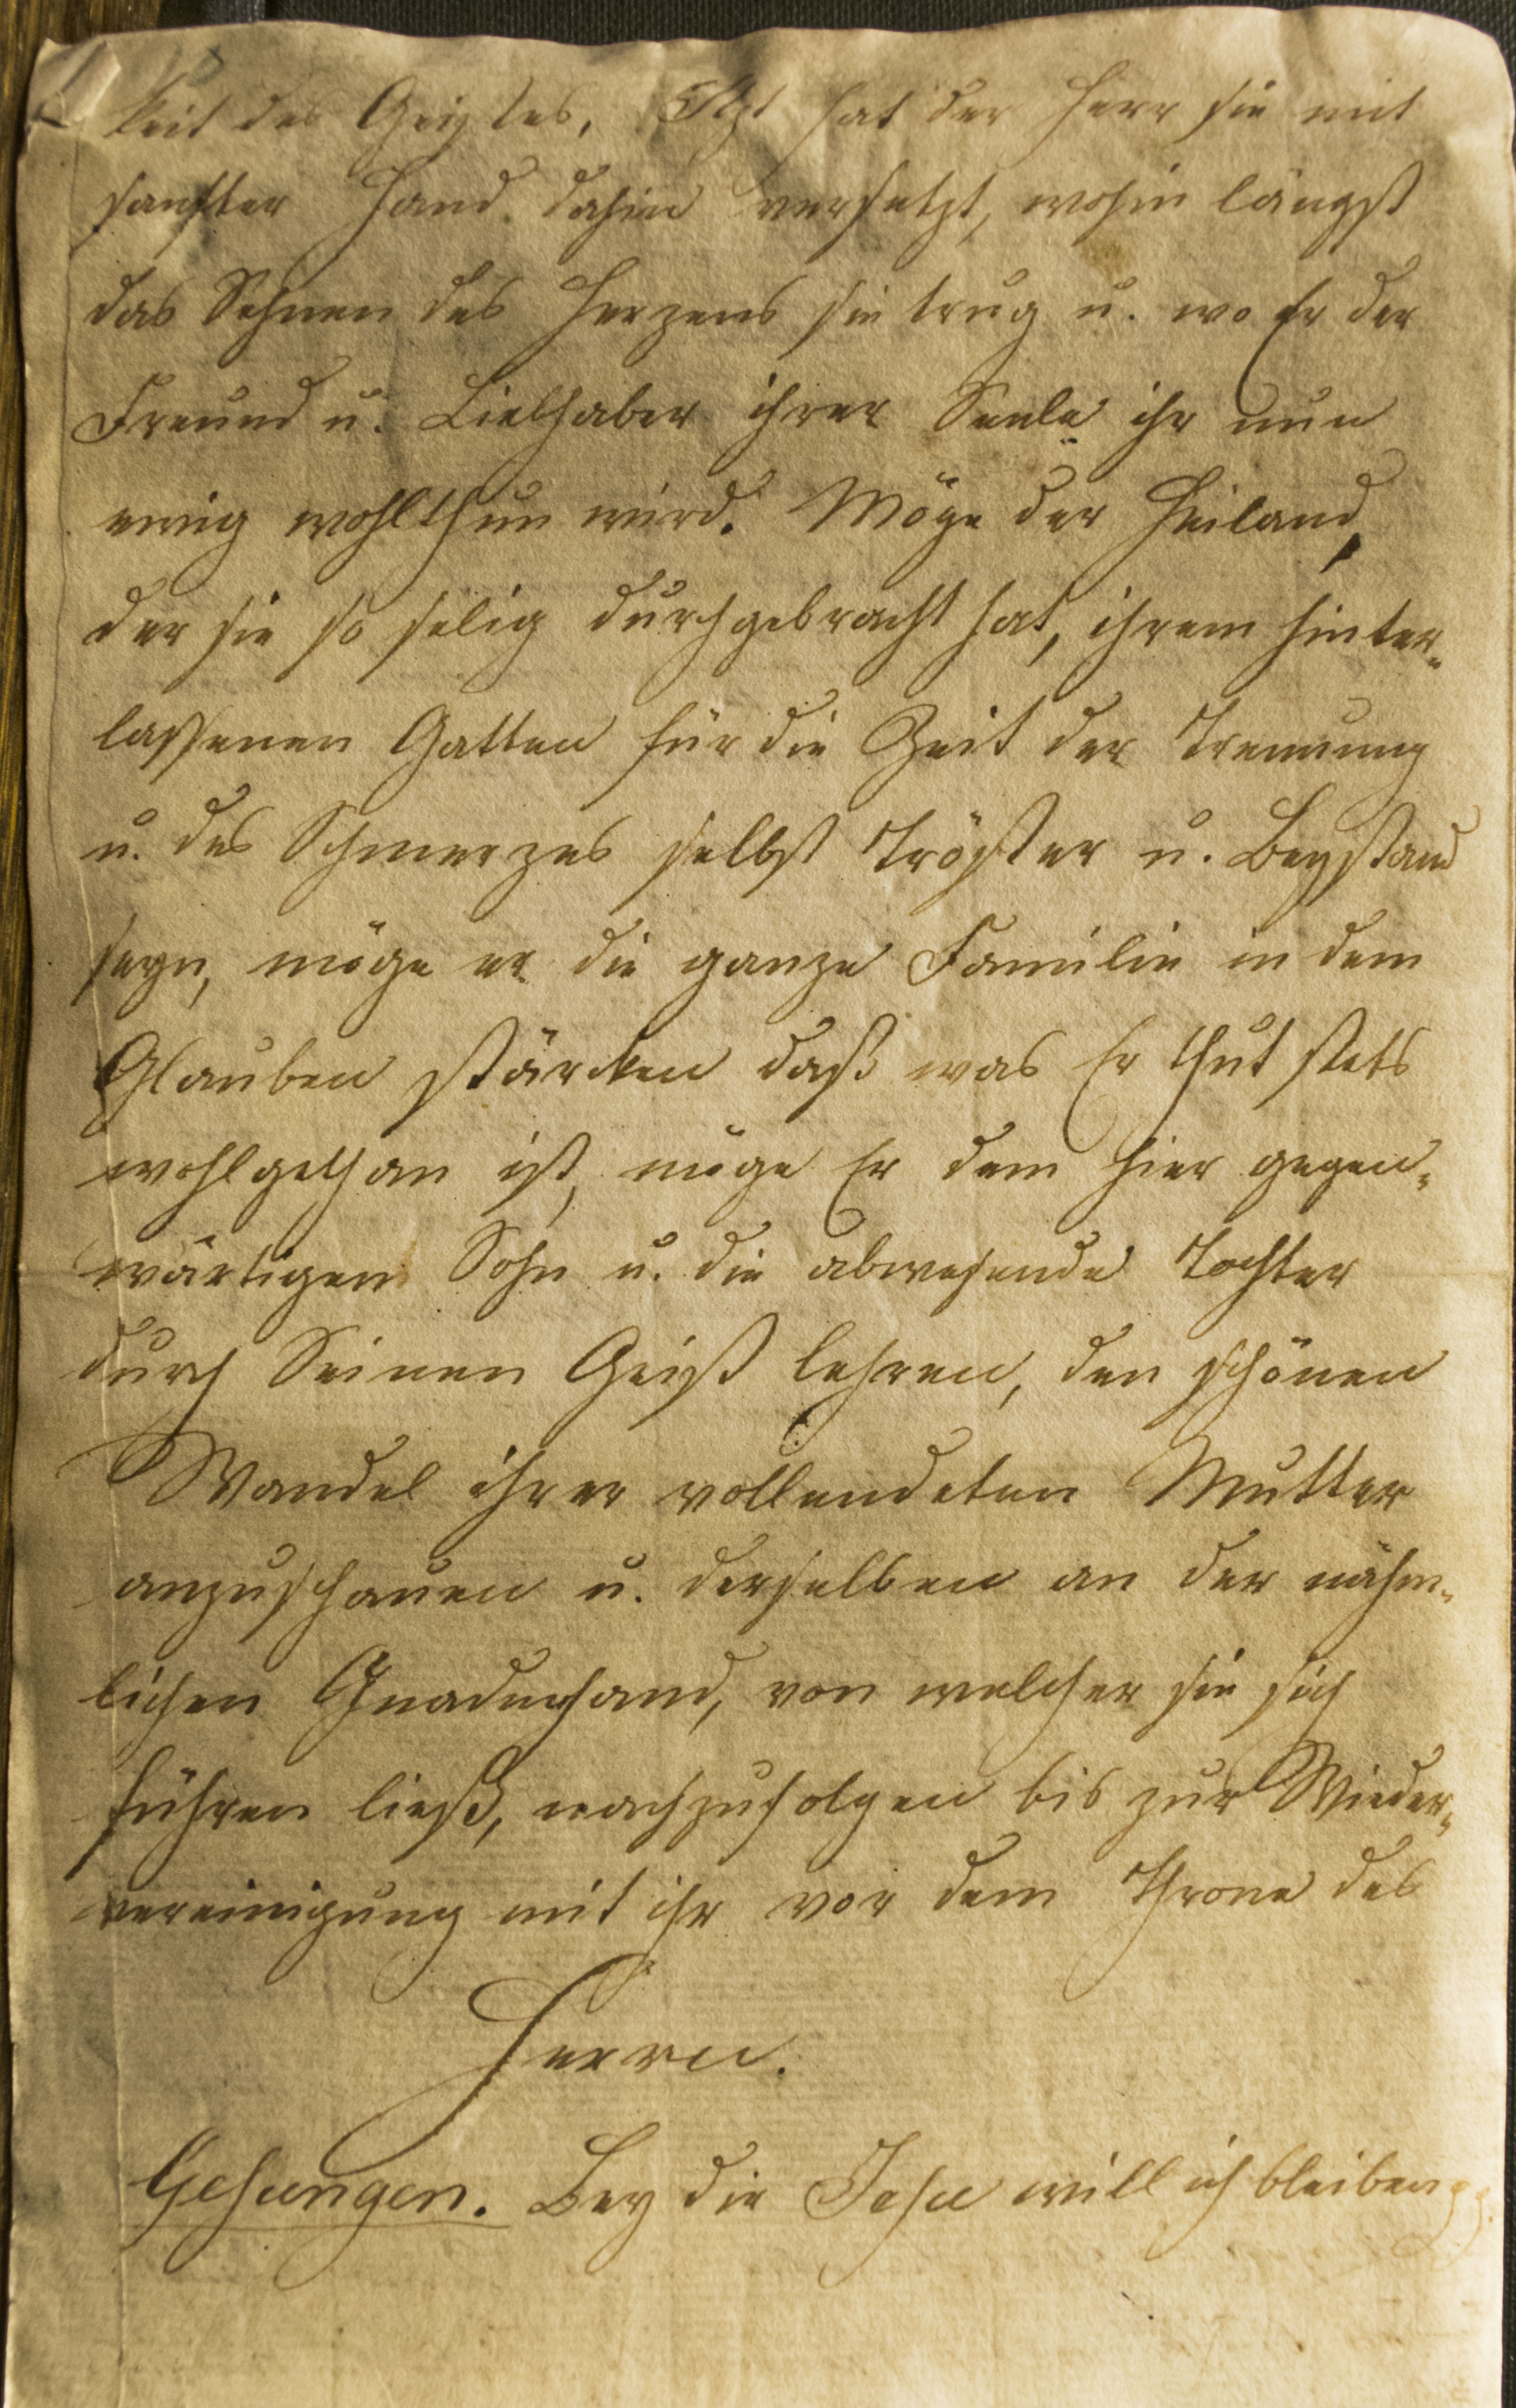 keit des Geistes, Itzt hat der Herr sie mit
sanfter Hand dahin versetzt, wohin längst
das Sehnen des Herzens sie trug u. wo Er der
Freund u. Liebhaber ihrer Seele ihr nun
ewig wohlthun wird. Möge der Heiland,
der sie so selig durchgebracht hat, ihrem hinter-
lassenen Gatten für die Zeit der Trennung
u. des Schmerzes selbst Tröster u. Beystand
seyn, möge er die ganze Familie in dem
Glauben stärken daß was Er thut stets
wohlgethan ist, möge Er dem hier gegen-
wärtigen Sohn u. die abwesende Tochter
durch Seinen Geist lehren, den schönen
Wandel ihrer vollendeten Mutter
anzuschauen u. derselben an der nähm-
lichen Gnadenhand, von welcher sie sich
führen ließ, nachzufolgen bis zur Wieder-
vereinigung mit ihr vor dem Throne des
Herrn.
Gesungen. Bey dir Jesu will ich bleiben